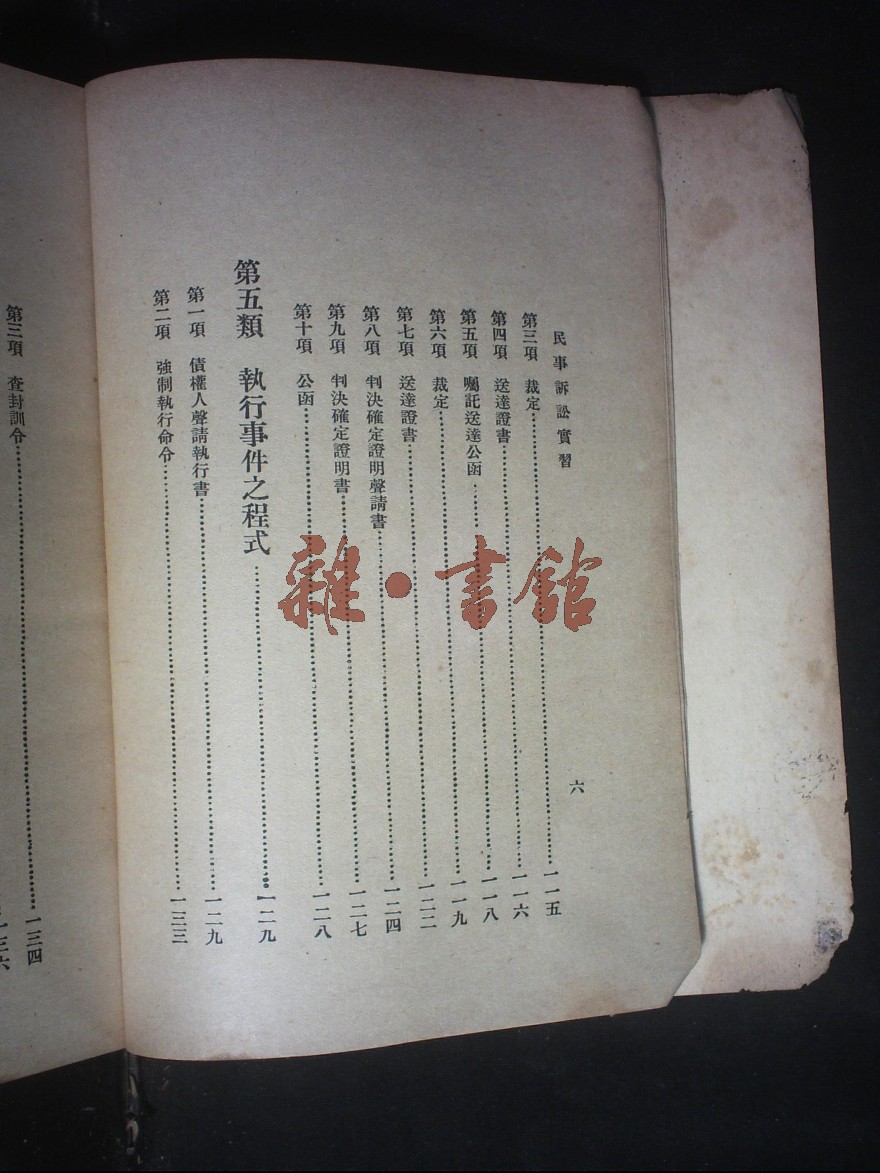 民事訴訟實習
六
第三項 裁定⋯⋯一一五
第四項 送達證書⋯⋯一一六
第五項 囑託送達公函⋯⋯一一八
第六項 裁定⋯⋯一一九
第七項 送達證書⋯⋯一二二
第八項 判決確定證明聲請書⋯⋯一二四
第九項 判決確定證明書⋯⋯一二七
第十項 公函⋯⋯一二八
第五類 執行事件之程式⋯⋯一二九
第一項 債權人聲請執行書⋯⋯一二九
第二項 強制執行命令⋯⋯一三三
第三項 查封訓令⋯⋯一三四
一三六
雜·書館